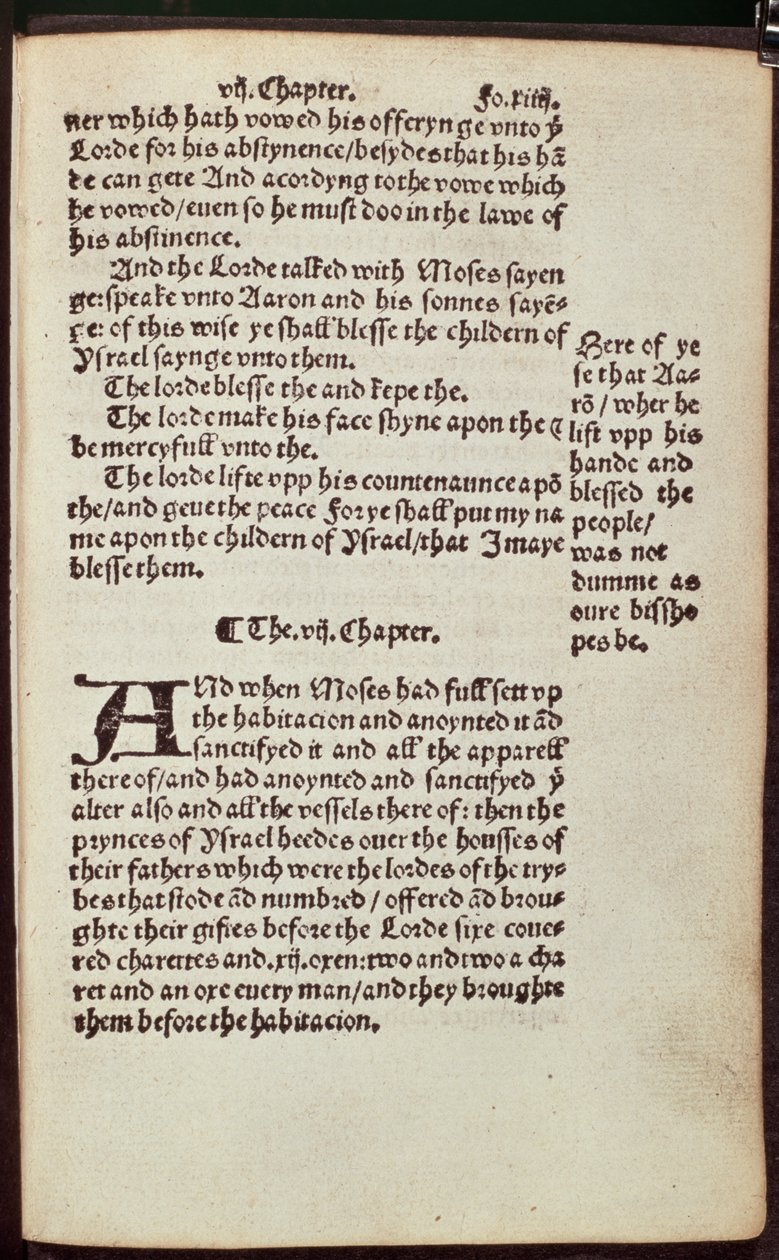 vij. Chapter. Fo. xiiij.
ner which hath vowed his offerynge vnto yͤ
Lorde for his abstynence/besydes that his hā
de can gete And acordyng to the vowe which
he vowed/euen so he must doo in the lawe of
his abstinence.
And the Lorde talked with Moses sayen
ge: speake vnto Aaron and his sonnes sayē⸗
ge: of this wise ye shall blesse the childern of
Ysrael saynge vnto them.
The lorde blesse the and kepe the.
The lorde make his face shyne apon the ⁊
be mercyfull vnto the.
The lorde lifte vpp his countenaunce apō
the/and geue the peace For ye shall put my na
me apon the childern of Ysrael/that I maye
blesse them.
Here of ye
se that Aa⸗
rō / wher he
lift vpp his
hande and
blessed the
people/
was not
dumme as
oure bissho
pes be.
¶ The .vij. Chapter.
ANd when Moses had full sett vp
the habitacion and anoynted it ād
sanctifyed it and all the apparell
thereof/and had anoynted and sanctifyed yͤ
alter also and all the vessels there of: then the
prynces of Ysrael heedes ouer the housses of
their fathers which were the lordes of the try⸗
bes that stode ād numbred / offered ād brou⸗
ghte their giftes before the Lorde sixe coue⸗
red charettes and .xij. oxen: two and two a cha
ret and an oxe euery man/and they broughte
them before the habitacion.